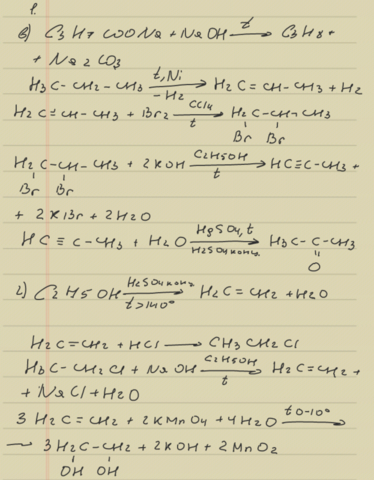 1.
в) C3H7COONa + NaOH —t→ C3H8 +
+ Na2CO3
H3C-CH2-CH3 —t, Ni / -H2→ H2C=CH-CH3 + H2
H2C=CH-CH3 + Br2 —CCl4 / t→ H2C-CH-CH3
Br Br
H2C-CH-CH3 + 2KOH —C2H5OH / t→ HC≡C-CH3 +
Br Br
+ 2KBr + 2H2O
HC≡C-CH3 + H2O —HgSO4, t / H2SO4 конц.→ H3C-C-CH3
O
г) C2H5OH —H2SO4 конц. / t>140°→ H2C=CH2 + H2O
H2C=CH2 + HCl → CH3CH2Cl
H3C-CH2Cl + NaOH —C2H5OH / t→ H2C=CH2 +
+ NaCl + H2O
3H2C=CH2 + 2KMnO4 + 4H2O —t 0-10°→
→ 3H2C-CH2 + 2KOH + 2MnO2
OH OH